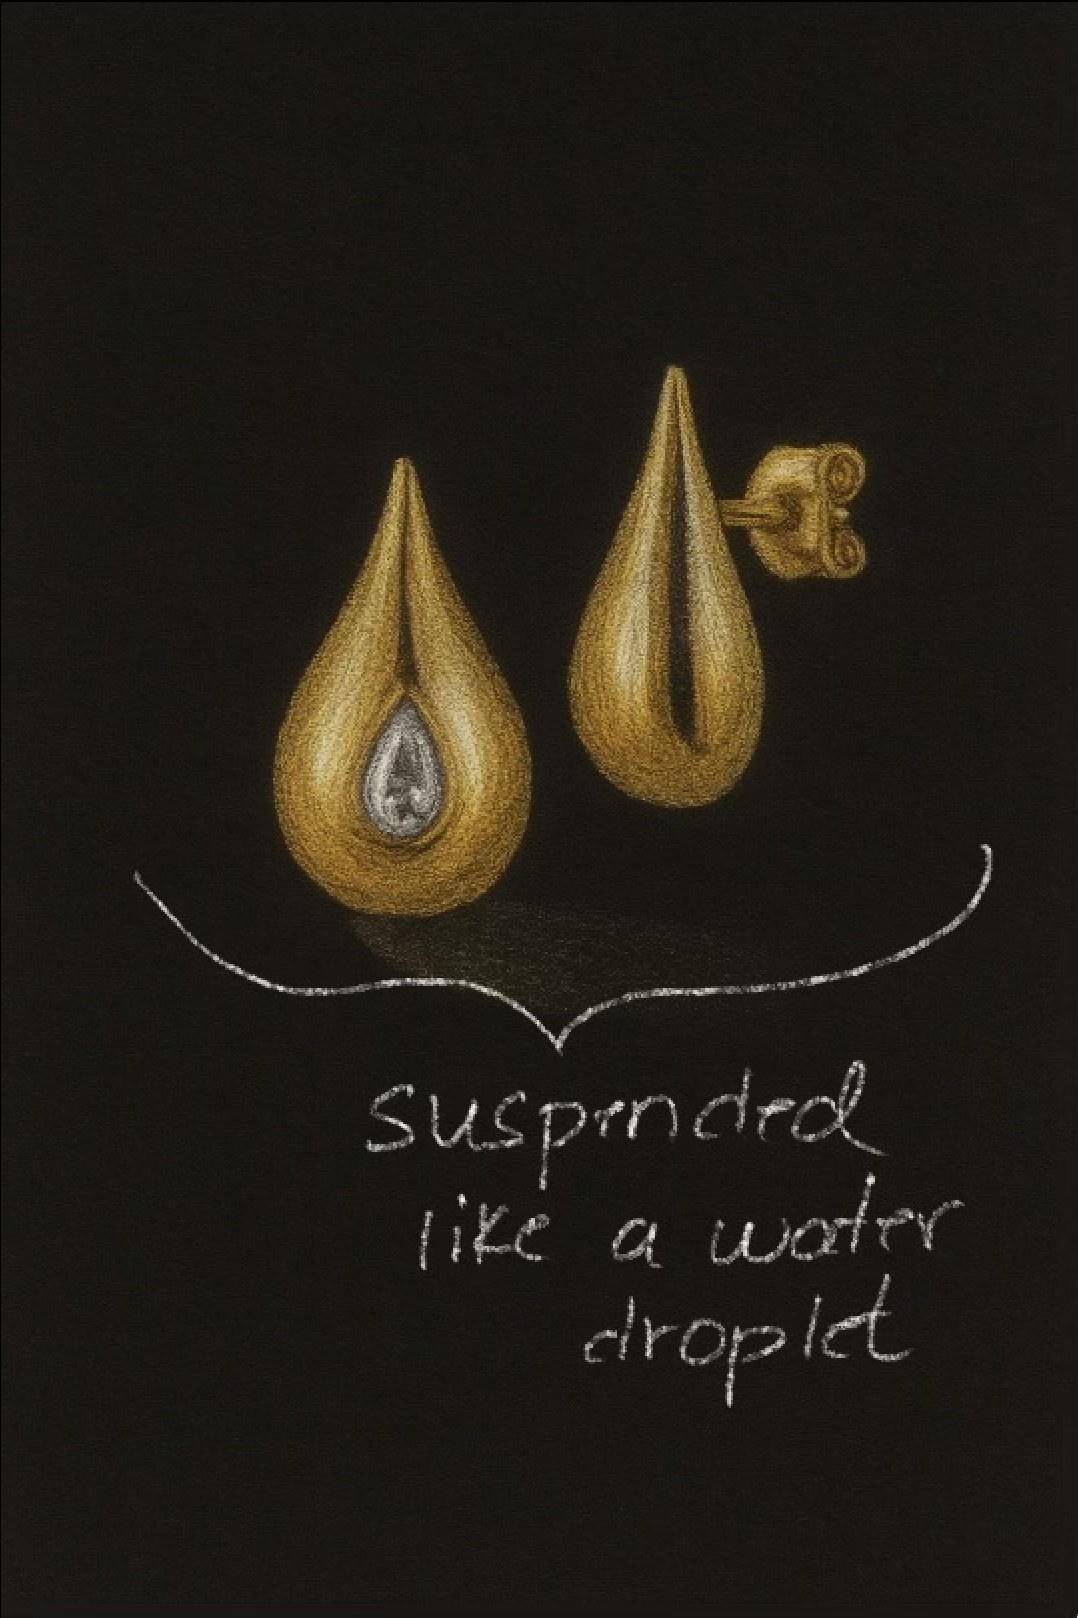 suspended
like a water
droplet